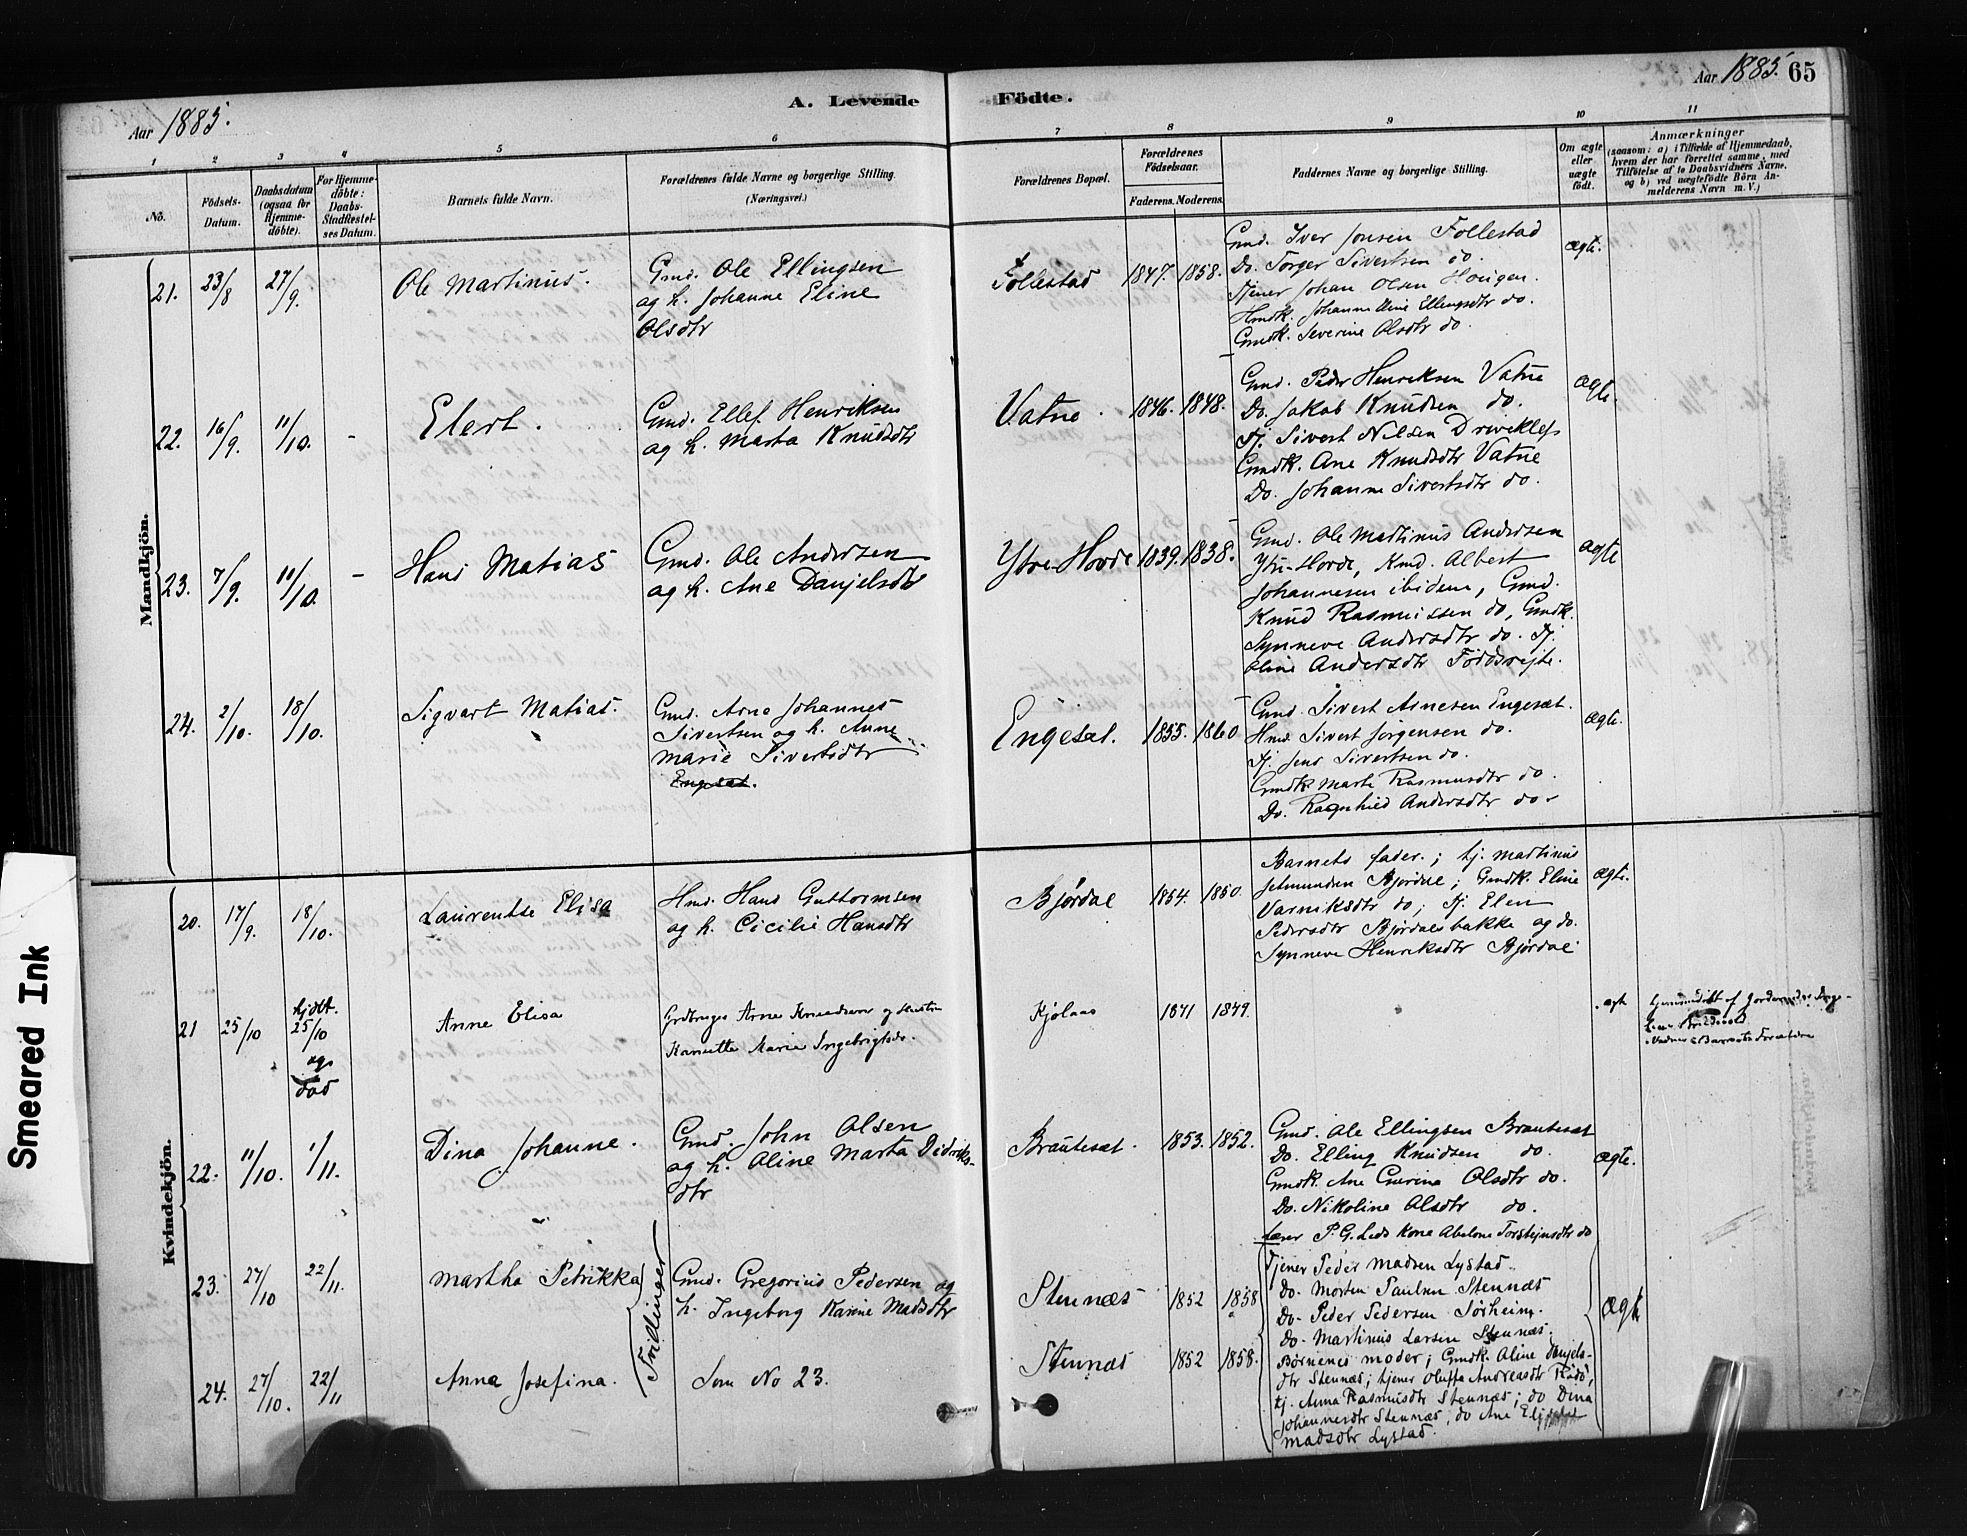 Aar 1885.
A. Levende Födte.
Aar 1885. 65
1 2 3 4 5 6 7 8 9 10 11
No.
Födsels-
Datum.
Daabsdatum
(ogsaa for
Hjemme-
döbte).
For Hjemme-
döbte:
Daabs-
Stadfæstel-
ses Datum.
Barnets fulde Navn.
Forældrenes fulde Navne og borgerlige Stilling.
(Næringsvei.)
Forældrenes Bopæl.
Forældrenes
Födselsaar.
Faderens. Moderens.
Faddernes Navne og borgerlige Stilling.
Om ægte
eller
uægte
födt.
Anmærkninger
(saasom: a) i Tilfælde af Hjemmedaab,
hvem der har forrettet samme, med
Tilföielse af to Daabsvidners Navne,
og b) ved uægtefödte Börn An-
melderens Navn m. V.)
Mandkjön.
21. 23/8 27/9. Ole Martinus.
Gmd. Ole Ellingsen
og h. Johanne Eline
Olsdtr
Follestad 1847. 1858.
Gmd. Iver Jonsen Follestad
Do. Torger Sivertsen do.
Tjener Johan Olsen Hougen.
Hmdk. Johanne Eline Ellingsdtr do.
Gmdk. Severine Olsdtr do.
ægte.
22. 16/9. 11/10. - Elert.
Gmd. Ellef Henriksen
og h. Marta Knudsdtr
Vatne. 1846. 1848.
Gmd. Peder Henriksen Vatne
Do. Jakob Knudsen do.
Tj. Sivert Nilsen Driveklep
Gmdk. Ane Knudsdtr Vatne
Do. Johanne Sivertsdtr do.
ægte.
23. 7/9. 11/10. - Hans Matias
Gmd. Ole Andersen
og h. Ane Danjelsdtr
Ytre-Hovde 1839. 1838.
Gmd. Ole Martinus Andersen
Ytre-Hovde, Kmd. Albert
Johannesen ibidem, Gmd.
Knud Rasmussen do, Gmdk.
Synneve Andersdtr do. Tj.
Eline Andersdtr
ægte
24. 2/10. 18/10. Sigvart Matias.
Gmd. Arne Johannes
Sivertsen og h. Anne
Marie Sivertsdtr
Engesæt.
Engesæt. 1855. 1860
Gmd. Sivert Arnesen Engesæt.
Hmd. Sivert Jørgensen do.
Tj. Jens Sivertsen do.
Gmdk. Marte Rasmusdtr do.
Do. Ragnhild Andersdtr do.
ægte.
Kvindekjön.
20. 17/9. 18/10. Laurentse Elisa
Hmd. Hans Guttormsen
og h. Cicilie Hansdtr
Bjørdal 1854. 1850.
Barnets fader.; tj. Martinus
Jetmundsen Bjørdal; Gmdk. Eline
Varniksdtr do; Tj. Elen
Pedersdtr Bjørdalsbakke og do.
Synneve Henriksdtr Bjørdal
ægte.
21 25/10 hjdbt.
25/10
og
död
Anne Elisa
Grdbruger Arne Knudsen og Hustru
Kanutte Marie Ingebrigtsdr.
Kjølaas 1841 1849.
ægte
Hjemmedøbt af Jordemoder
Vidner: Barnets Forældre
22. 11/10. 1/11. Dina Johanne.
Gmd. John Olsen
og h. Aline Marta Didriks-
dtr
Brautesæt. 1853. 1852.
Gmd. Ole Ellingsen Brautesæt
Do. Elling Knudsen do.
Gmdk. Ane Guerine Olsdtr do.
Do. Nikoline Olsdtr do.
P. G. Leds Kone Abelone Torstejnsdtr do
ægte.
23. 27/10 22/11. Martha Petrikka
Trillinger
Gmd. Gregorius Pedersen og
h. Ingeborg Karine Madsdtr
Stennæs 1852 1858
Tjener Peder Madsen Lystad.
Do. Morten Paulsen Stennæs
Do. Peder Pedersen Sørheim.
Do. Martinus Larsen Stennæs.
ægte
24. 27/10. 22/11 Anna Josefina.
Som No 23.
Stennæs 1852 1858.
Børnenes moder; Gmdk. Aline Danjels-
dtr Stennæs; tjener Oluffa Andreasdtr
tj. Anna Rasmusdtr Stennæs; do Dina
Johannesdtr Stennæs; do Ane Elisabet
Madsdtr Lystad.
Smeared Ink